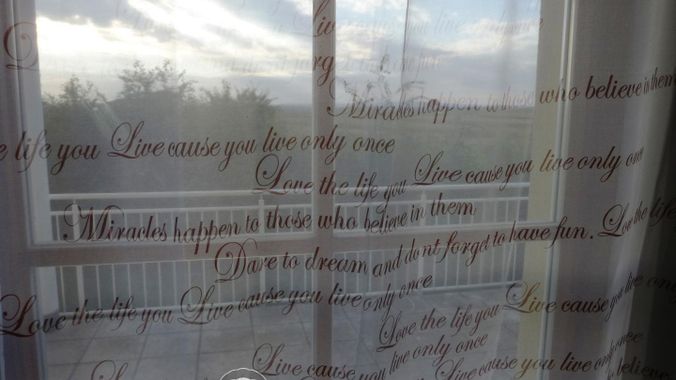 Live cause you live only once
forget
Miracles happen to those who believe in them
e life you Live cause you live only once
Love the life you Live cause you live only once
Miracles happen to those who believe in them
Dare to dream and dont forget to have fun. Love the life
Love the life you Live cause you live only once
Love the life you Live cause you
live only once
Live cause you live only once
Live cause you live only once
believe